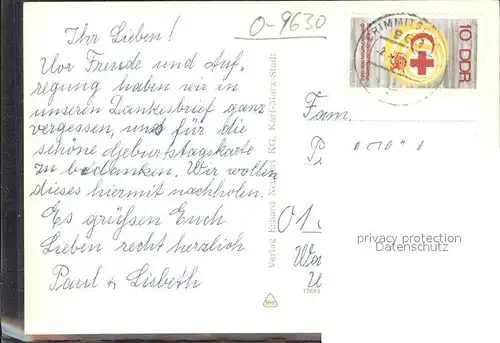 O-9630
Ihr Lieben!
Vor Freude und Auf-
regung haben wir in
unseren Dankesbrief ganz
vergessen, uns für die
schöne Geburtstagskarte
zu bedanken. Wir wollen
dieses hiermit nachholen.
Es grüßen Euch
Lieben recht herzlich
Paul u Lisbeth
KG. Karl-Marx-Stadt
Verlag Erhard
CRIMMITS
10 DDR
Fam.
01
privacy protection
Datenschutz